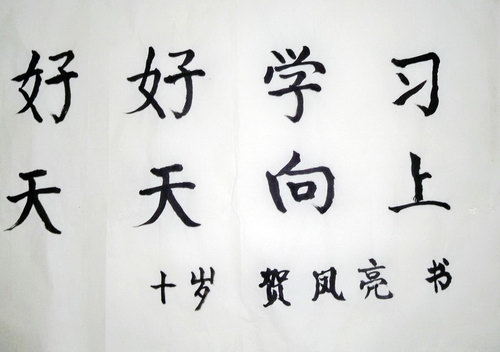 好好学习
天天向上
十岁 贺凤亮 书